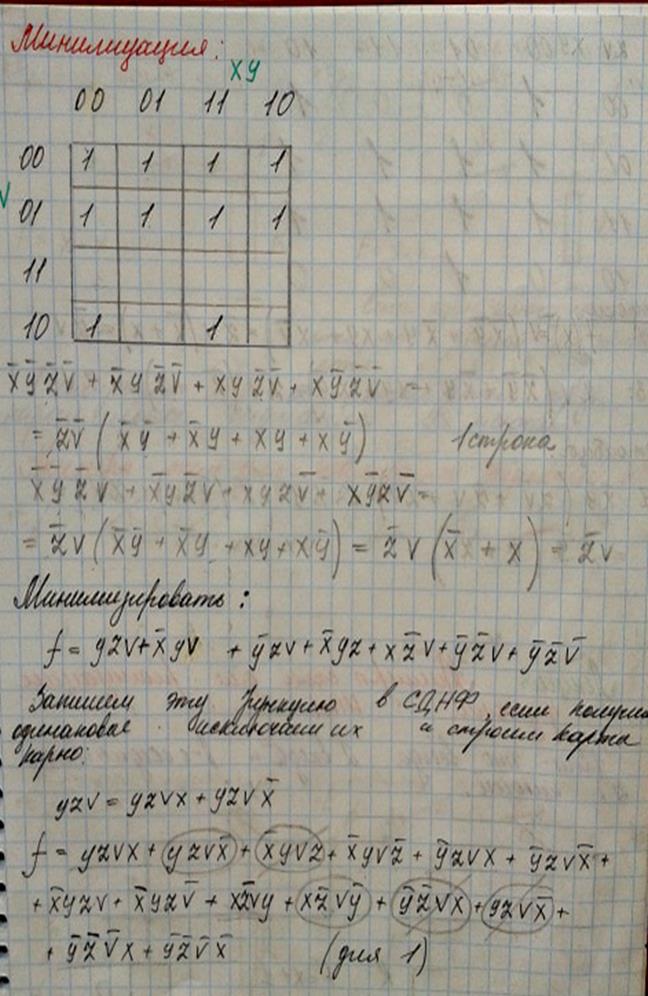 Минимизация:
xy
00 01 11 10
00 1 1 1 1
v
01 1 1 1 1
11
10 1 1
x̄ȳz̄v̄ + x̄yz̄v̄ + xyz̄v̄ + xȳz̄v̄
= z̄v̄ (x̄ȳ + x̄y + xy + xȳ) 1 строка
x̄ȳz̄v + x̄yz̄v + xyzv̄ + xȳzv̄ =
= z̄v (x̄ȳ + x̄y + xy + xȳ) = z̄v (x̄ + x) = z̄v
Минимизировать:
f = yzv + x̄yv + ȳzv + x̄yz + xz̄v + ȳz̄v + ȳz̄v̄
Запишем эту функцию в СДНФ, если получим
одинаковые исключаем их и строим карта
карно:
yzv = yzvx + yzvx̄
f = yzvx + yzvx̄ + x̄yvz + x̄yvz̄ + ȳzvx + ȳzvx̄ +
+ x̄yzv + x̄yzv̄ + xz̄vy + xz̄vȳ + ȳz̄vx + ȳzvx̄ +
+ ȳz̄v̄x + ȳz̄v̄x̄ (для 1)